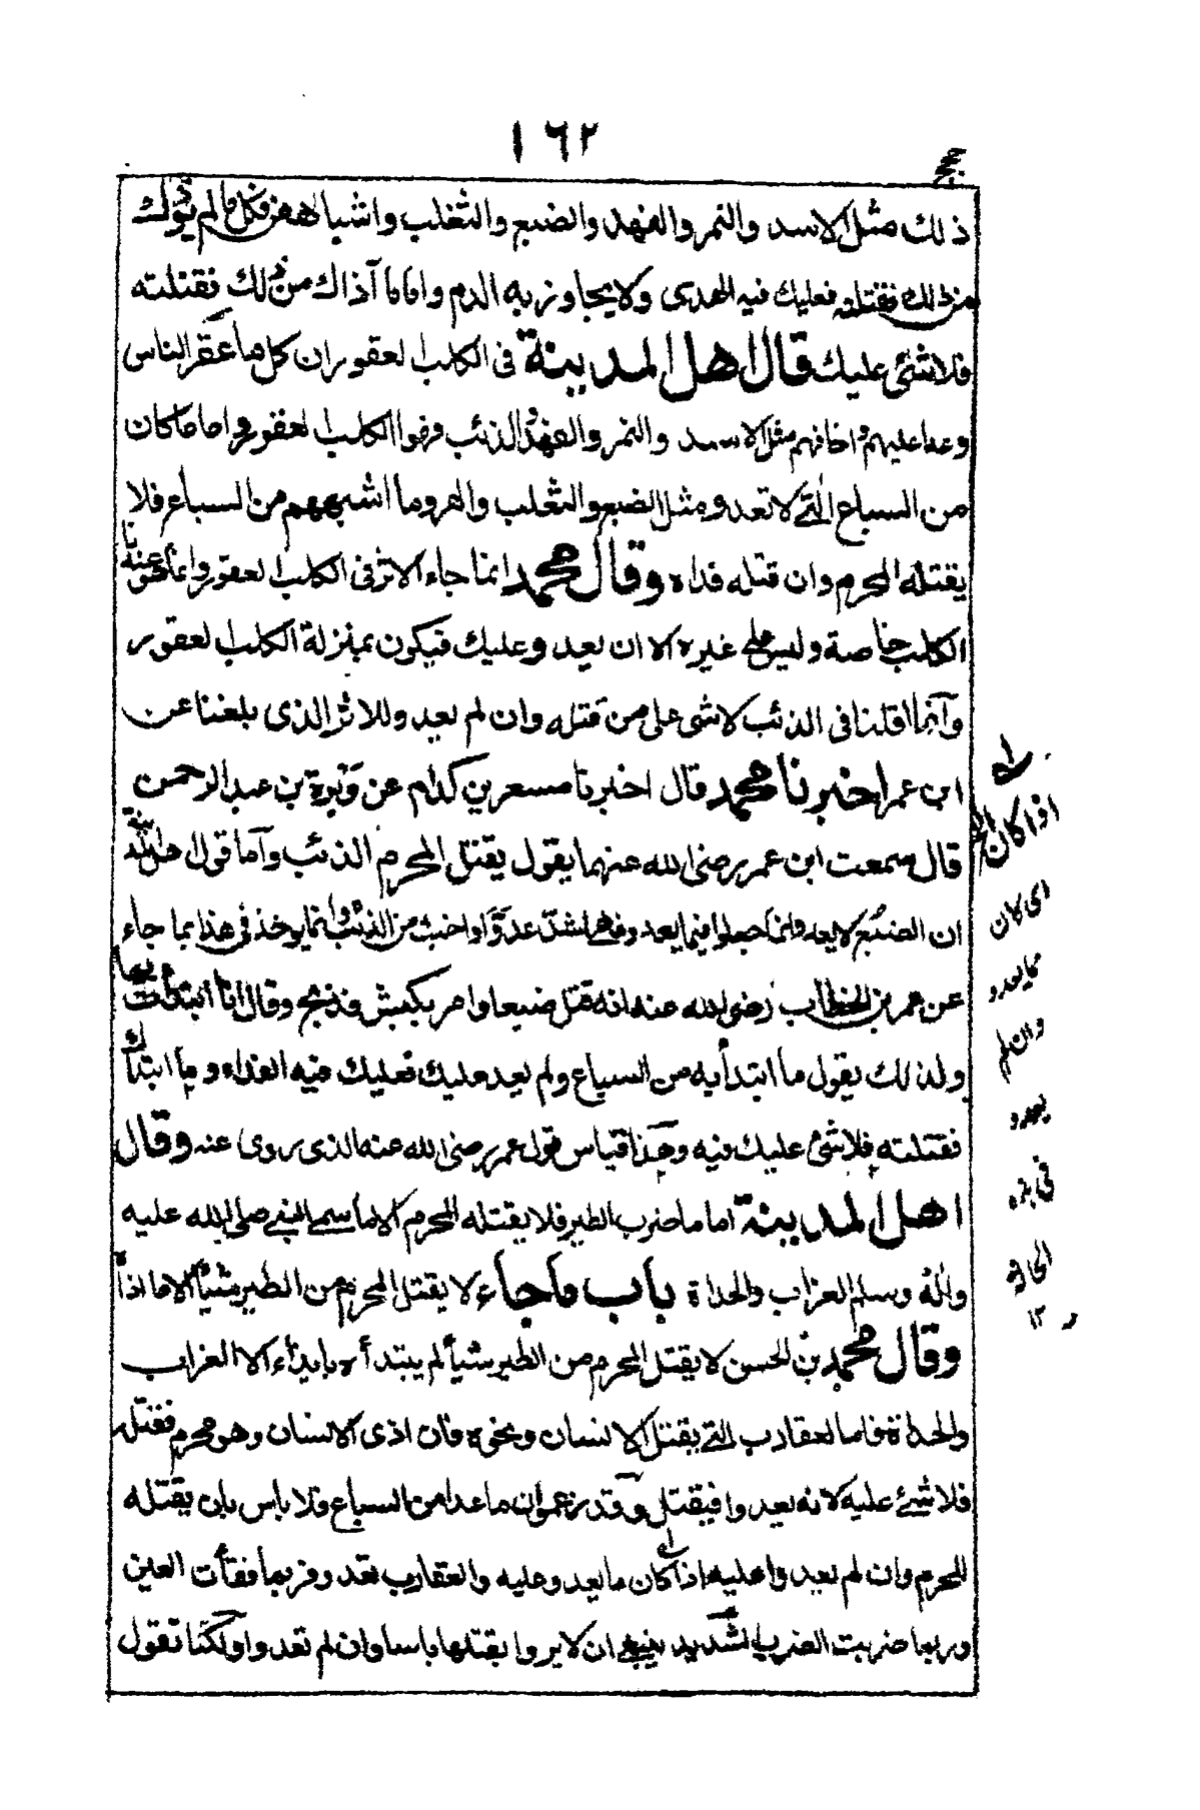 ١٦٢
حج
ذلك مثل الاسد والنمر والفهد والضبع والثعلب واشباههن فكل ما لم يوذك
من ذلك فقتلته فعليك فيه الهدى ولا يجاوز به الدم واماما آذاك من ذلك فقتلته
فلا شئ عليك قال اهل المدينة فى الكلب العقور ان كل ما عقر الناس
وعدا عليهم واخافهم مثل الاسد والنمر والفهد والذئب فهو الكلب العقور واما ما كان
من السباع التى لا تعدو مثل الضبع والثعلب والهر وما اشبههم من السباع فلا
يقتله المحرم وان قتله فداه وقال محمد انما جاء الاثر فى الكلب العقور وانما هو عندنا
الكلب خاصة وليس على غيره الا ان يعدو عليك فيكون بمنزلة الكلب العقور
وانما قلنا فى الذئب لا شى على من قتله وان لم يعد وللاثر الذى بلغنا عن
ابن عمر اخبرنا محمد قال اخبرنا مسعر بن كدام عن وبرة بن عبد الرحمن
قال سمعت ابن عمر رضى الله عنهما يقول يقتل المحرم الذئب وآما قول اهل المدينة
ان الضبع لا يعدو وانما جعلوا فيما يعدو وماهى اشد عدوا واخبث من الذئب وانما يوخذ فى هذا بما جاء
عن عمر بن الخطاب رضى الله عنه انه قتل ضبعا وامر بكبش فذبح وقال انا ابتدأتها
ولذلك يقول ما ابتدأ به من السباع ولم يعد عليك فعليك فيه الفداء وما ابتدأك
فقتلته فلا شئ عليك فيه وهذا قياس قول عمر رضى الله عنه الذى روى عنه وقال
اهل المدينة اما ما ضرب الطير فلا يقتله المحرم الا ما سمى النبى صلى الله عليه
وآله وسلم الغراب والحداة باب ما جاء لا يقتل المحرم من الطير شيأ الا ما اذاه
وقال محمد بن الحسن لا يقتل المحرم من الطير شيأ لم يبتدأه بايذاء الا الغراب
والحداة فاما العقارب التى يقتل الانسان ونحوه فان اذى الانسان وهو محرم فقتله
فلا شئ عليه لانه يعدوا فيقتل وقد زعموا ان ما عدا من السباع فلا باس بان يقتله
المحرم وان لم يعدوا عليه اذا كان ما يعدو عليه والعقارب تعدو فربما فقأت العين
وربما ضربت الضرب الشديد ينبغى ان لا يروا بقتلها باسا وان لم تعدوا ولكنا نقول
اى
اذا كان
اى كان
مما يعدو
وان لم
يعدو
فى هذه
الحالة
١٢